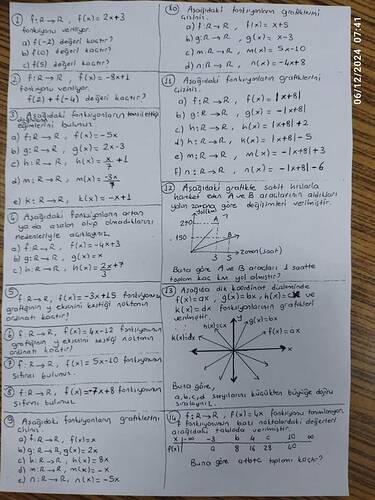 ① f: R→R, f(x)= 2x+3
fonksiyonu veriliyor.
a) f(-2) değeri kaçtır?
b) f(0) değeri kaçtır?
c) f(5) değeri kaçtır?
② f: R→R, f(x)= -8x+1
fonksiyonu veriliyor.
f(2) + f(-4) değeri kaçtır?
③ Aşağıdaki fonksiyonların
eğimlerini bulunuz.
a) f: R→R, f(x)= -5x
b) g: R→R, g(x)= 2x-3
c) h: R→R, h(x)= x/7 + 1
d) m: R→R, m(x)= -3x/7
e) k: R→R, k(x)= -x+1
④ Aşağıdaki fonksiyonların artan
ya da azalan olup olmadıklarını
nedenleriyle açıklayınız.
a) f: R→R, f(x)= -4x+3
b) g: R→R, g(x)= x
c) h: R→R, h(x)= 2x/3 + 7
⑤ f: R→R, f(x)= -3x+15 fonksiyonu
grafiğinin y eksenini kestiği noktanın
ordinatı kaçtır?
⑥ f: R→R, f(x)= 4x-12 fonksiyonunun
grafiğinin y eksenini kestiği noktanın
ordinatı kaçtır?
⑦ f: R→R, f(x)= 5x-10 fonksiyonunun
sıfırını bulunuz.
⑧ f: R→R, f(x)= -7x+8 fonksiyonunun
sıfırını bulunuz.
⑨ Aşağıdaki fonksiyonların grafiklerini
çiziniz.
a) f: R→R, f(x)= x
b) g: R→R, g(x)= 2x
c) h: R→R, h(x)= 8x
d) m: R→R, m(x)= -x
e) n: R→R, n(x)= -5x
⑩ Aşağıdaki fonksiyonların grafiklerini
çiziniz.
a) f: R→R, f(x)= x+5
b) g: R→R, g(x)= x-3
c) m: R→R, m(x)= 5x-10
d) n: R→R, n(x)= -4x+8
⑪ Aşağıdaki fonksiyonların grafiklerini
çiziniz.
a) f: R→R, f(x)= |x+8|
b) g: R→R, g(x)= -|x+8|
c) h: R→R, h(x)= |x+8|+2
d) k: R→R, k(x)= |x+8|-5
e) m: R→R, m(x)= -|x+8|+3
f) n: R→R, n(x)= -|x+8|-6
⑫ Aşağıdaki grafikte sabit hızlarla
hareket eden A ve B araçlarının aldıkları
yolun zamana göre değişimleri verilmiştir.
yol(km)
A
B
150
3 5
zaman(saat)
Buna göre A ve B araçları 1 saatte
toplam kaç km yol almıştır?
⑬ Aşağıda dik koordinat düzleminde
f(x)=ax, g(x)=bx, h(x)=cx ve
k(x)=dx fonksiyonlarının grafikleri
verilmiştir.
y
h(x)=cx
g(x)=bx
k(x)=dx
f(x)=ax
x
Buna göre,
a,b,c,d sayılarını küçükten büyüğe doğru
sıralayınız.
⑭ f: R→R, f(x)=4x fonksiyonu tanımlanıyor.
f fonksiyonunun bazı noktalardaki değerleri
aşağıdaki tabloda verilmiştir.
x -∞ -3 b 4 c 10 ∞
f(x) a 8 16 28 40
Buna göre a+b+c toplamı kaçtır?
06/12/2024 07:41